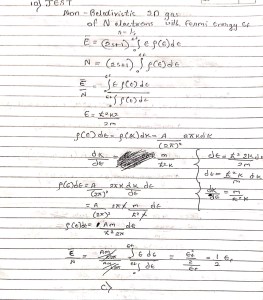 10) JEST
Non-Relativistic 2D gas
of N electrons with Fermi energy Ef
s=1/2
E = (2s+1) ∫₀^εf ε ρ(ε)dε
N = (2s+1) ∫₀^εf ρ(ε)dε
E/N = ∫₀^εf ε ρ(ε)dε / ∫₀^εf ρ(ε)dε
E = ħ²k²/2m
ρ(ε)dε = ρ(k)dk = A/(2π)² 2πkdk
dk/dε = m/ħ²k
dε = ħ² 2k dk/2m
dε = ħ²k dk/m
dk/dε = m/ħ²k
ρ(ε)dε = A/(2π)² 2πk dk/dε dε
= A/(2π)² 2πk m/ħ²k dε
ρ(ε)dε = Am/ħ²2π dε
E/N = Am/ħ²2π ∫₀^εf ε dε / Am/ħ²2π ∫₀^εf dε = εf²/2/εf = 1/2 εf
c)